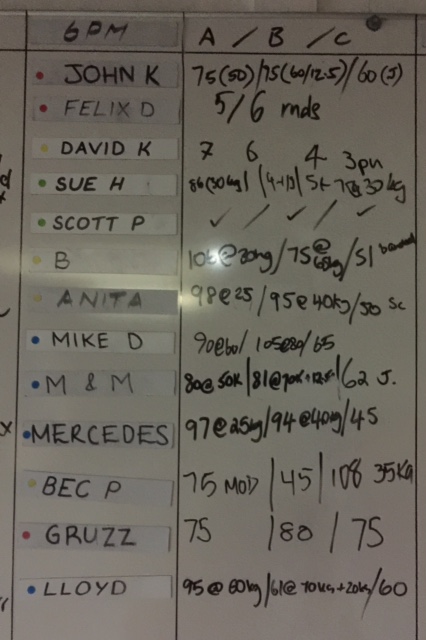 6PM A / B / C
JOHN K 75(50)/75(60/12.5)/60(J)
FELIX D 5/6 rnds
DAVID K 7 6 4 3pn
SUE H
SCOTT P ✓ / ✓ / ✓
B 106@30kg/75@60kg/51 banded
ANITA 98@25/95@40KG/50 sc
MIKE D 90@60/105@80/65
M & M 80@50K/81@70K+12.5/62 J.
MERCEDES 97@25kg/94@40kg/45
BEC P 75 MOD/45/108 35Kg
GRUZZ 75 /80/ 75
LLOYD 95@60kg/61@70kgs+20kg/60